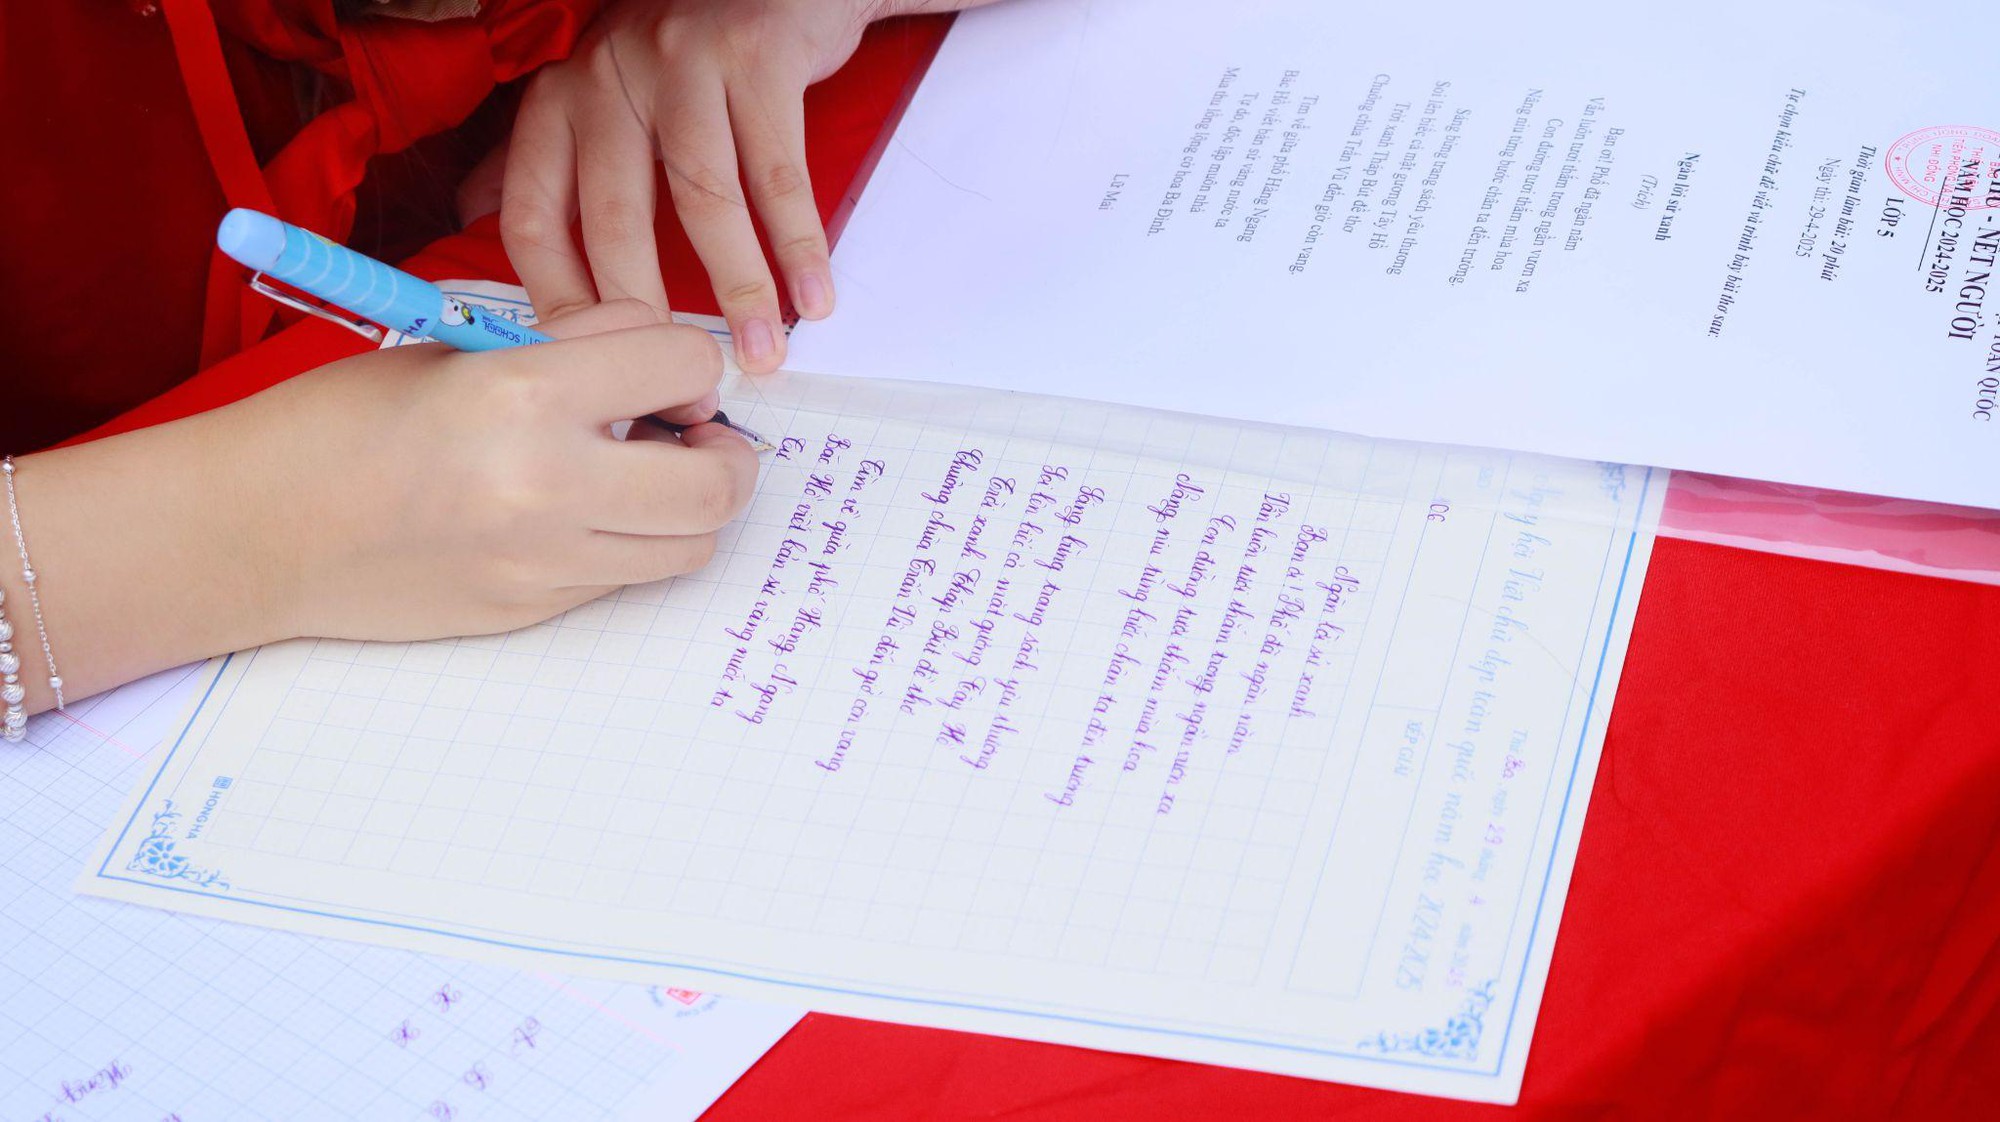 TOÀN QUỐC
- NÉT NGƯỜI
NĂM HỌC 2024-2025
LỚP 5
Thời gian làm bài: 20 phút
Ngày thi: 29-4-2025
Tự chọn kiểu chữ để viết và trình bày bài thơ sau:
Ngàn lời sử xanh
(Trích)
Bạn ơi! Phố đã ngàn năm
Vẫn luôn tươi thắm trong ngần vươn xa
Con đường tươi thắm mùa hoa
Nâng niu từng bước chân ta đến trường.
Sáng bừng trang sách yêu thương
Soi lên biếc cả mặt gương Tây Hồ
Trời xanh Tháp Bút đề thơ
Chuông chùa Trấn Vũ đến giờ còn vang.
Tìm về giữa phố Hàng Ngang
Bác Hồ viết bản sử vàng nước ta
Tự do, độc lập muôn nhà
Mùa thu lồng lộng cờ hoa Ba Đình.
Lữ Mai
hội Viết chữ đẹp toàn quốc năm học 2024-2025
Thứ Ba ngày 29 tháng 4 năm 2025
06
XẾP GIẢI
Ngàn lời sử xanh
Bạn ơi! Phố đã ngàn năm
Vẫn luôn tươi thắm trong ngần vươn xa
Con đường tươi thắm mùa hoa
Nâng niu từng bước chân ta đến trường
Sáng bừng trang sách yêu thương
Soi lên biếc cả mặt gương Tây Hồ
Trời xanh Tháp Bút đề thơ
Chuông chùa Trấn Vũ đến giờ còn vang
Tìm về giữa phố Hàng Ngang
Bác Hồ viết bản sử vàng nước ta
Tự
HONG HA
SCHOOL